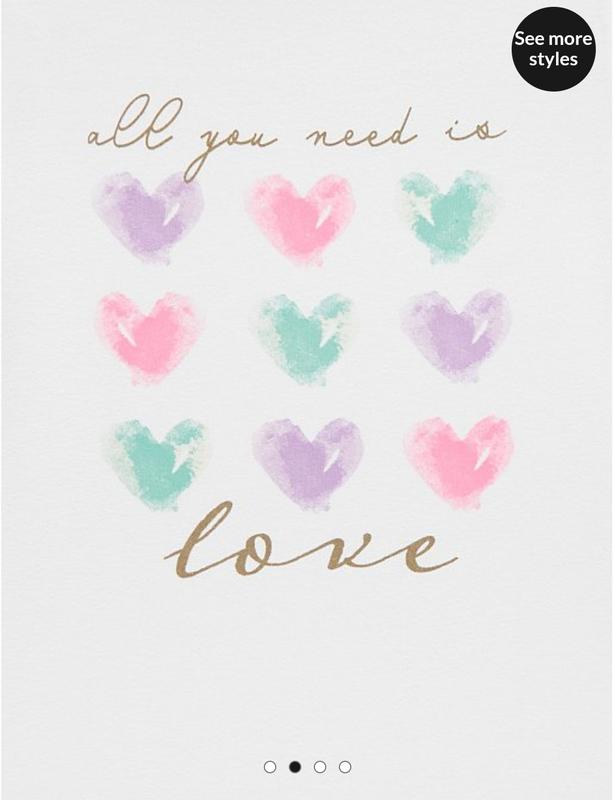 See more
styles
all you need is
love